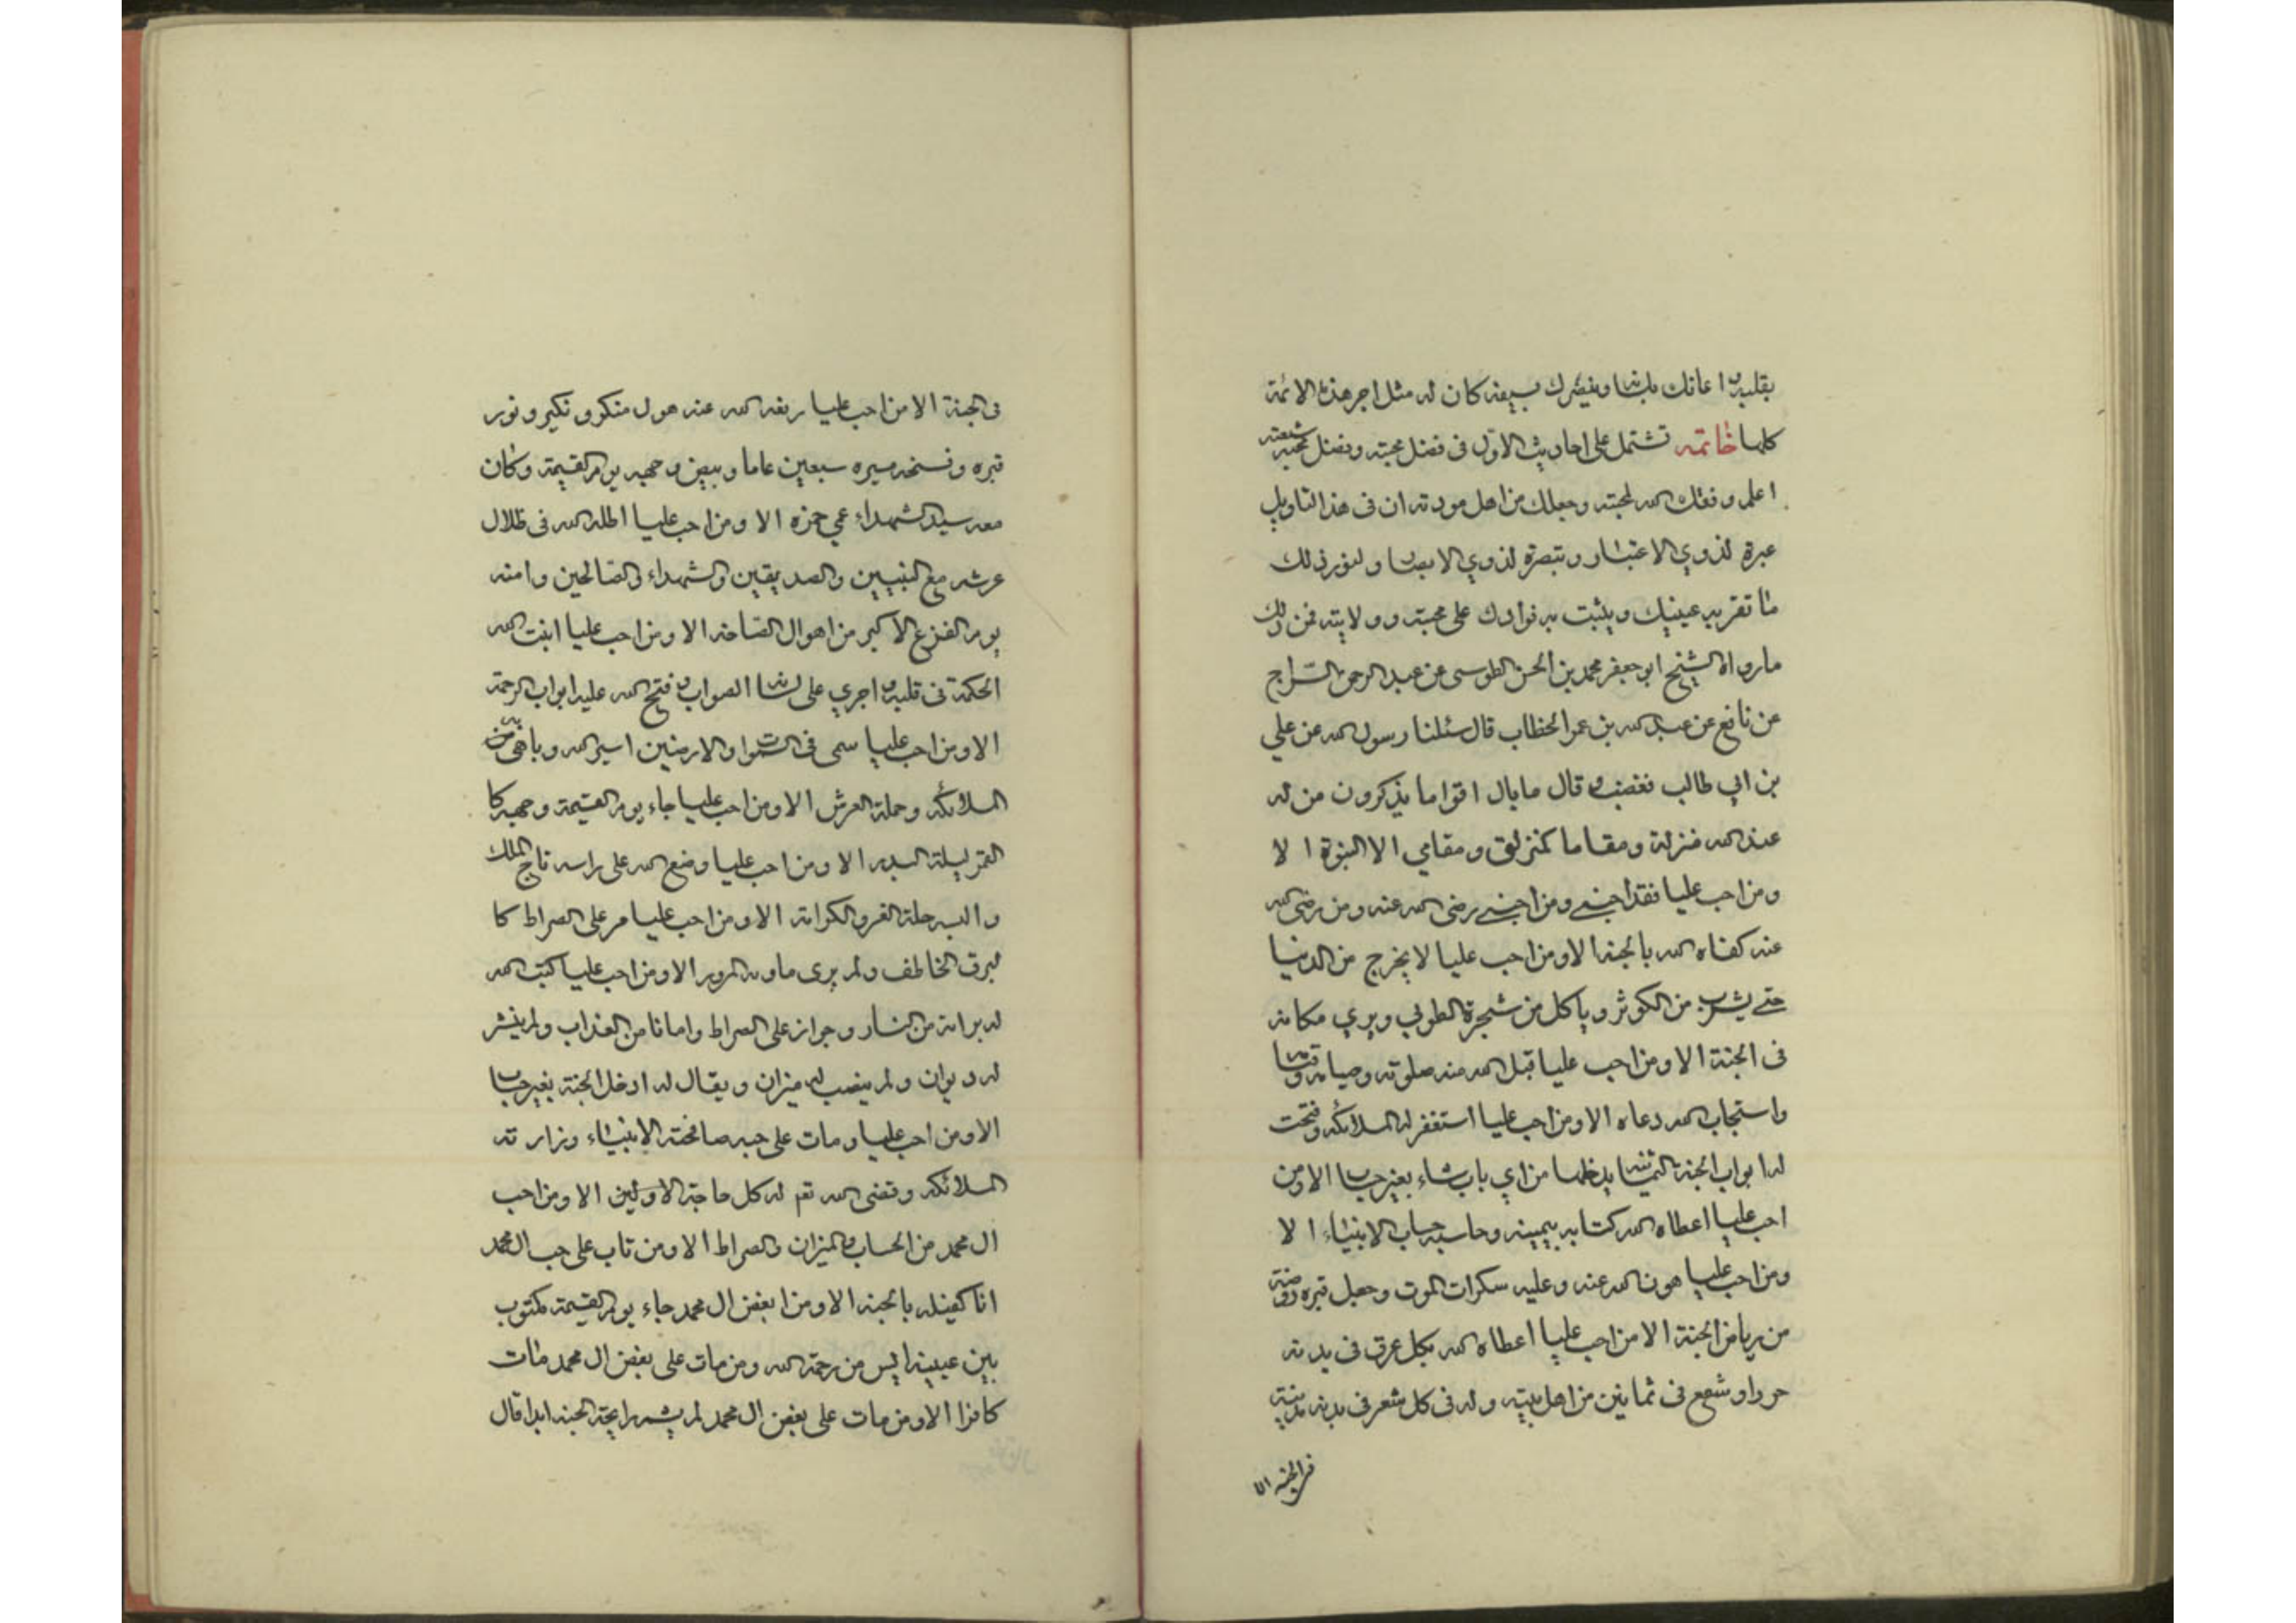 بقلبه و اعانك بلسانه و ينصرك بسيفه كان له مثل اجر هذه الائمة
كلها خاتمه تشتمل على احاديث الاول فى فضل محبته و فضل محبيه شيعته
اعلم وفقك الله لمحبته وجعلك من اهل مودته ان فى هذا التاويل
عبرة لذوي الاعتبار و تبصرة لذوي الابصار و لنورد لك
ما تقر به عينيك و يثبت به فوادك على محبته و ولايته فمن ذلك
مارواه الشيخ ابو جعفر محمد بن الحسن الطوسى عن عبد الرحمن السراج
عن نافع عن عبد الله بن عمر الخطاب قال سئلنا رسول الله عن علي
بن ابي طالب فغضب و قال ما بال اقواما يذكرون من له
عند الله منزلة ومقاما كمنزلتى و مقامي الا النبوة الا
ومن احب عليا فقد احبنى ومن احبنى رضى الله عنه ومن رضى الله
عنه كفاه الله بالجنه الا ومن احب عليا لا يخرج من الدنيا
حتى يشرب من الكوثر و ياكل من شجرة الطوبي و يري مكانه
فى الجنة الا ومن احب عليا قبل الله منه صلوته وصيامه وقيامه
واستجاب الله دعاه الا ومن احب عليا استغفر له الملائكه وفتحت
له ابواب الجنة الثمانية يدخلها من اي باب شاء بغير حساب الا ومن
احب عليا اعطاه الله كتابه بيمينه وحاسبه حساب الانبياء الا
ومن احب عليا هون الله عنه وعليه سكرات الموت وجعل قبره روضة
من رياض الجنة الا من احب عليا اعطاه الله بكل عرق فى بدنه
حورا و شفع فى ثمانين من اهل بيته وله فى كل شعر فى بدنه مدينة
فى الجنه الا
فى الجنة الا من احب عليا رفع الله عنه هول منكر و نكير و نور
قبره و فسخه مسيره سبعين عاما و بيض وجهه يوم القيمة وكان
معه سيد الشهداء عمي حمزه الا ومن احب عليا اظله الله فى ظلال
عرشه مع النبيين والصديقين والشهداء والصالحين وامنه
يوم الفزع الاكبر من اهوال الصاخه الا ومن احب عليا اثبت الله
الحكمة فى قلبه و اجري على لسانه الصواب و فتح الله عليه ابواب الرحمة
الا ومن احب عليا سمى فى السموات والارضين اسير الله و باهى به من
الملائكه وحملة العرش الا ومن احب عليا جاء يوم القيمة و وجهه كا
القمر ليلة البدر الا ومن احب عليا وضع الله على راسه تاج الملك
والبسه حلة العز والكرامة الا ومن احب عليا مر على الصراط كا
لبرق الخاطف ولم يرى ماونه المرور الا ومن احب عليا كتب الله
له براءة من النار و جواز على الصراط وامانا من العذاب ولم ينشر
له ديوان ولم ينصب له ميزان و يقال له ادخل الجنة بغير حساب
الا ومن احب عليا و مات على حبه صافحته الانبياء وزارته
الملائكه وقضى الله تع له كل حاجة الاولين الا ومن احب
ال محمد من الحساب والميزان والصراط الا ومن تاب على حب ال محمد
انا كفيله بالجنه الا ومن ابغض ال محمد جاء يوم القيمة مكتوب
بين عينيه ايس من رحمة الله ومن مات على بغض ال محمد مات
كافرا الا ومن مات على بغض ال محمد لم يشم رايحة الجنه ابدا قال